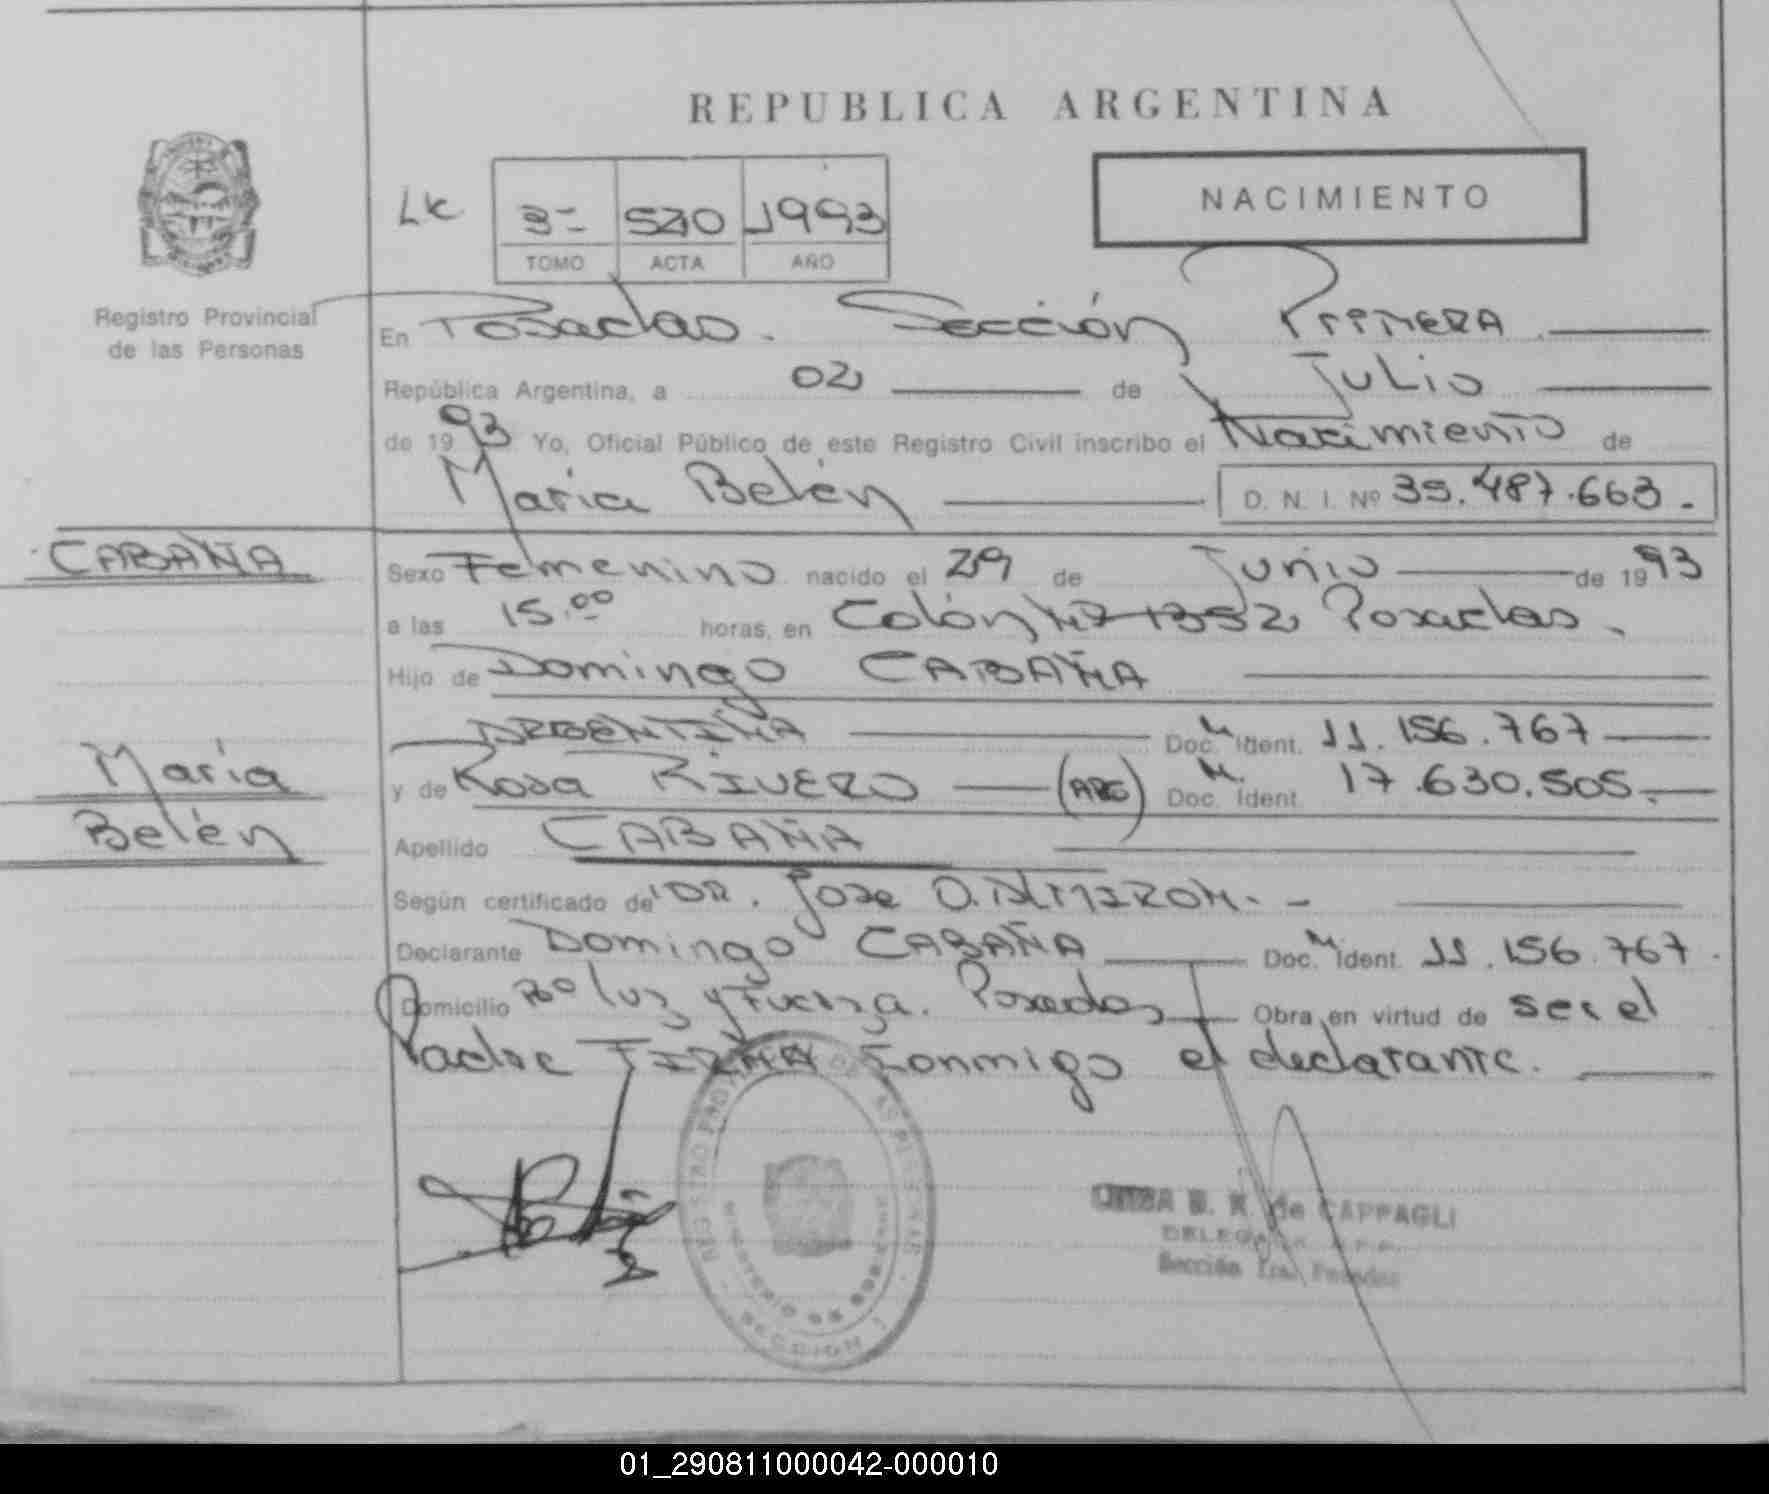 REPUBLICA ARGENTINA
NACIMIENTO
LK 3- 520 1993
TOMO ACTA AÑO
Registro Provincial
de las Personas
En Posadas. Sección PRIMERA
República Argentina, a 02 de Julio
de 1993 Yo, Oficial Público de este Registro Civil inscribo el Nacimiento de
María Belén D. N. I. Nº 39.487.663.-
CABAÑA
Sexo Femenino nacido el 29 de Junio de 1993
a las 15.00 horas, en Colón Nº 1352 Posadas.
Hijo de Domingo CABAÑA
ARGENTINA Doc. M Ident. 11.156.767
y de Rosa RIVERO (ARG) Doc. M. Ident. 17.630.505.
María
Belén
Apellido CABAÑA
Según certificado de DR. Jose O. ALMIRON.-
Declarante Domingo CABAÑA Doc. M Ident. 11.156.767.
Domicilio Bº luz y Fuerza. Posadas Obra en virtud de ser el
Padre FIRMA Conmigo el declarante.
REGISTRO PROVINCIAL DE LAS PERSONAS
MINISTERIO DE GOBIERNO
SECCION 1
de CAPPAGLI
DELEGADA
Sección 1ra. Posadas
01_290811000042-000010